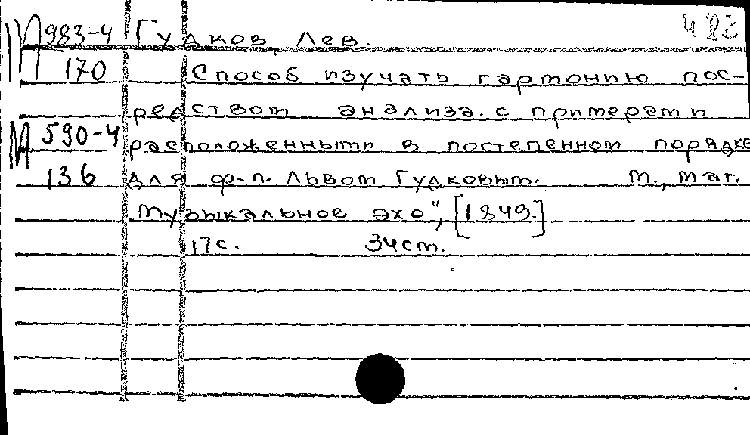 М983-4 Гудков, Лев. 483
170 Способ изучать гармонию пос-
редством анализа с примерами
М590-4 расположенными в постепенном порядке
136 для ф-п. Львом Гудковым. М., маг.
"Музыкальное эхо", [1849]
17с. 34см.